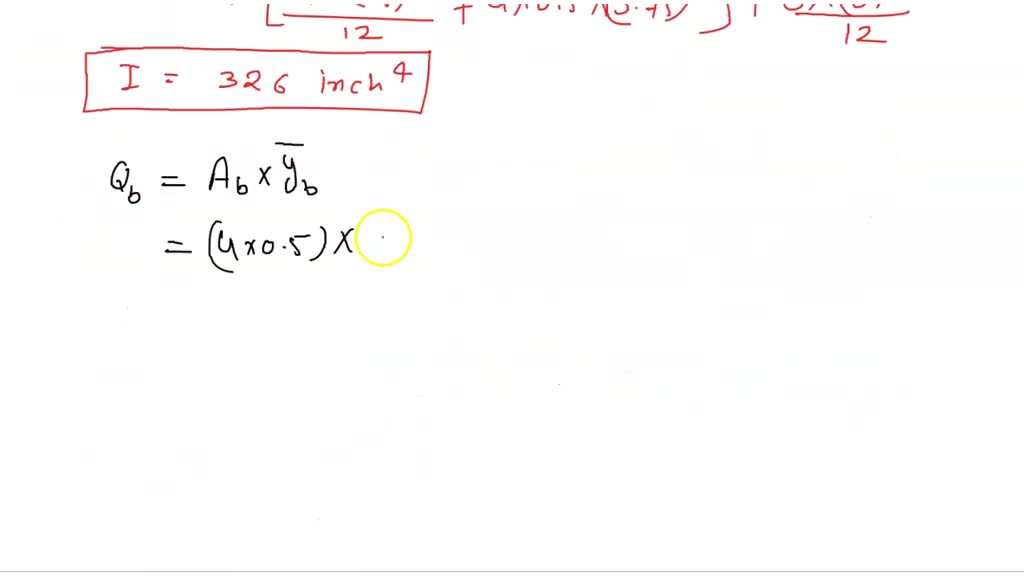 12
12
I = 326 inch⁴
Q_b = A_b × y̅_b
= (4×0.5) ×